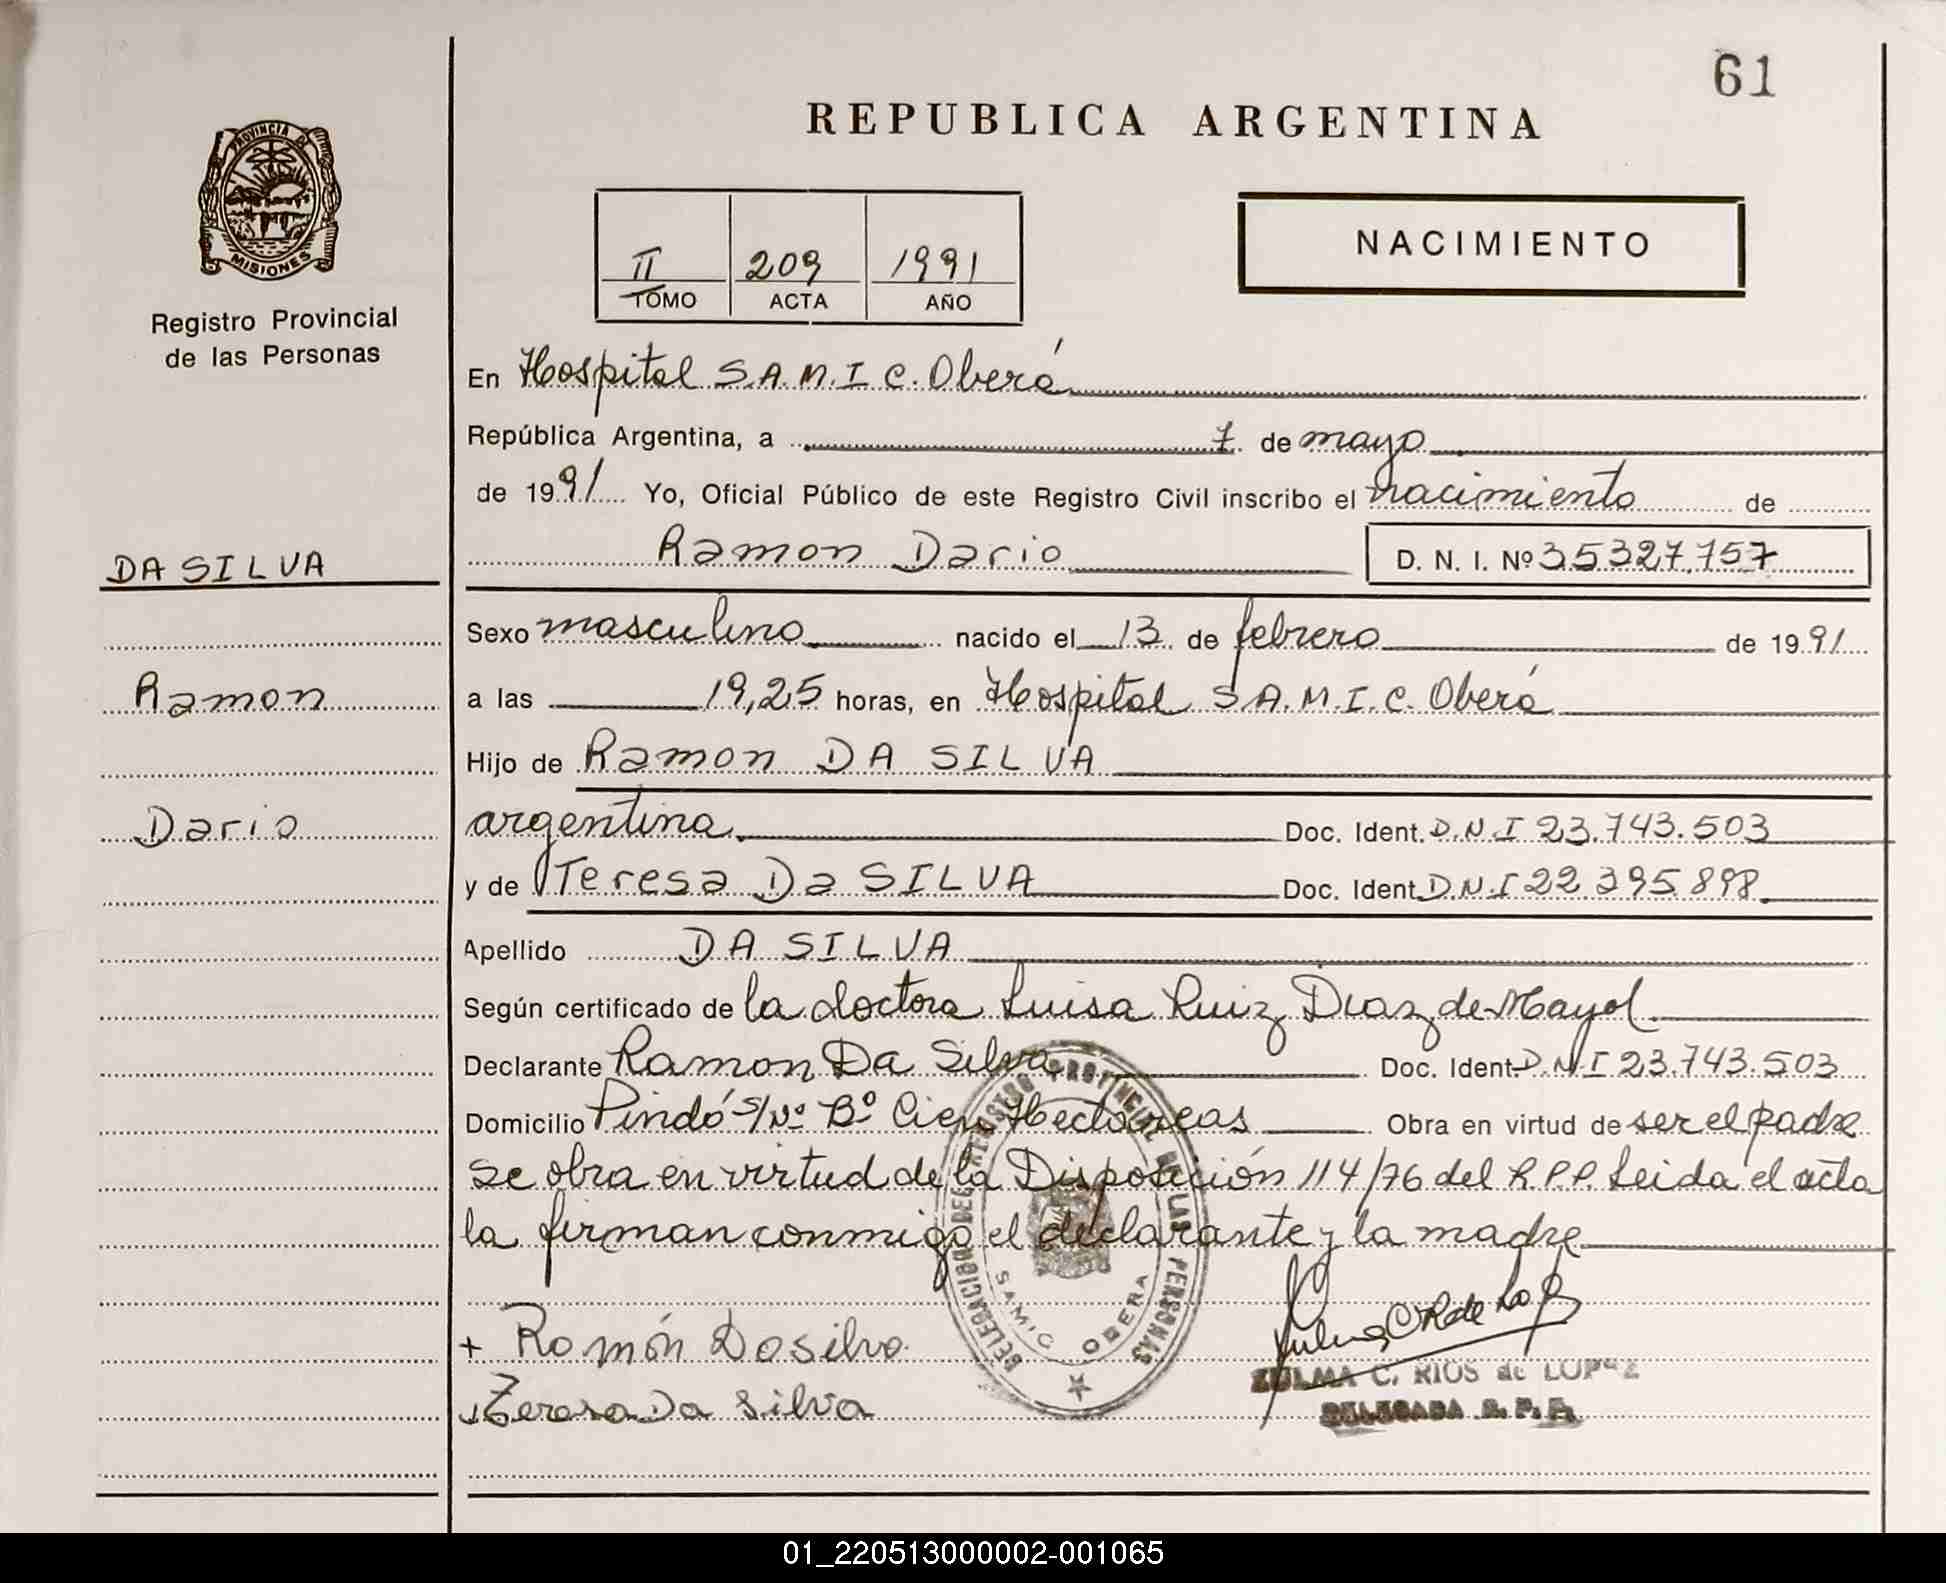 61
REPUBLICA ARGENTINA
PROVINCIA DE
MISIONES
Registro Provincial
de las Personas
II 209 1991
TOMO ACTA AÑO
NACIMIENTO
En Hospital S.A.M.I.C. Oberá
República Argentina, a 7 de mayo
de 1991 Yo, Oficial Público de este Registro Civil inscribo el nacimiento de
Ramon Dario D. N. I. Nº 35327.757
DA SILVA
Ramon
Dario
Sexo masculino nacido el 13 de febrero de 1991
a las 19,25 horas, en Hospital S.A.M.I.C. Oberá
Hijo de Ramon DA SILVA
argentina Doc. Ident. D.N.I 23.743.503
y de Teresa Da SILVA Doc. Ident. D.N.I 22.395.898
Apellido DA SILVA
Según certificado de la doctora Luisa Ruiz Diaz de Mayol
Declarante Ramon Da Silva Doc. Ident. D.N.I 23.743.503
Domicilio Pindó S/Nº Bº Cien Hectáreas Obra en virtud de ser el padre
se obra en virtud de la Disposición 114/76 del R.P.P. Leida el acta
la firman conmigo el declarante y la madre
DELEGACION DEL REGISTRO PROVINCIAL DE LAS PERSONAS
SAMIC OBERA
+ Ramón Dasilva
Teresa Da Silva
ZULMA C. RIOS de LOPEZ
DELEGADA R. P. P.
01_220513000002-001065